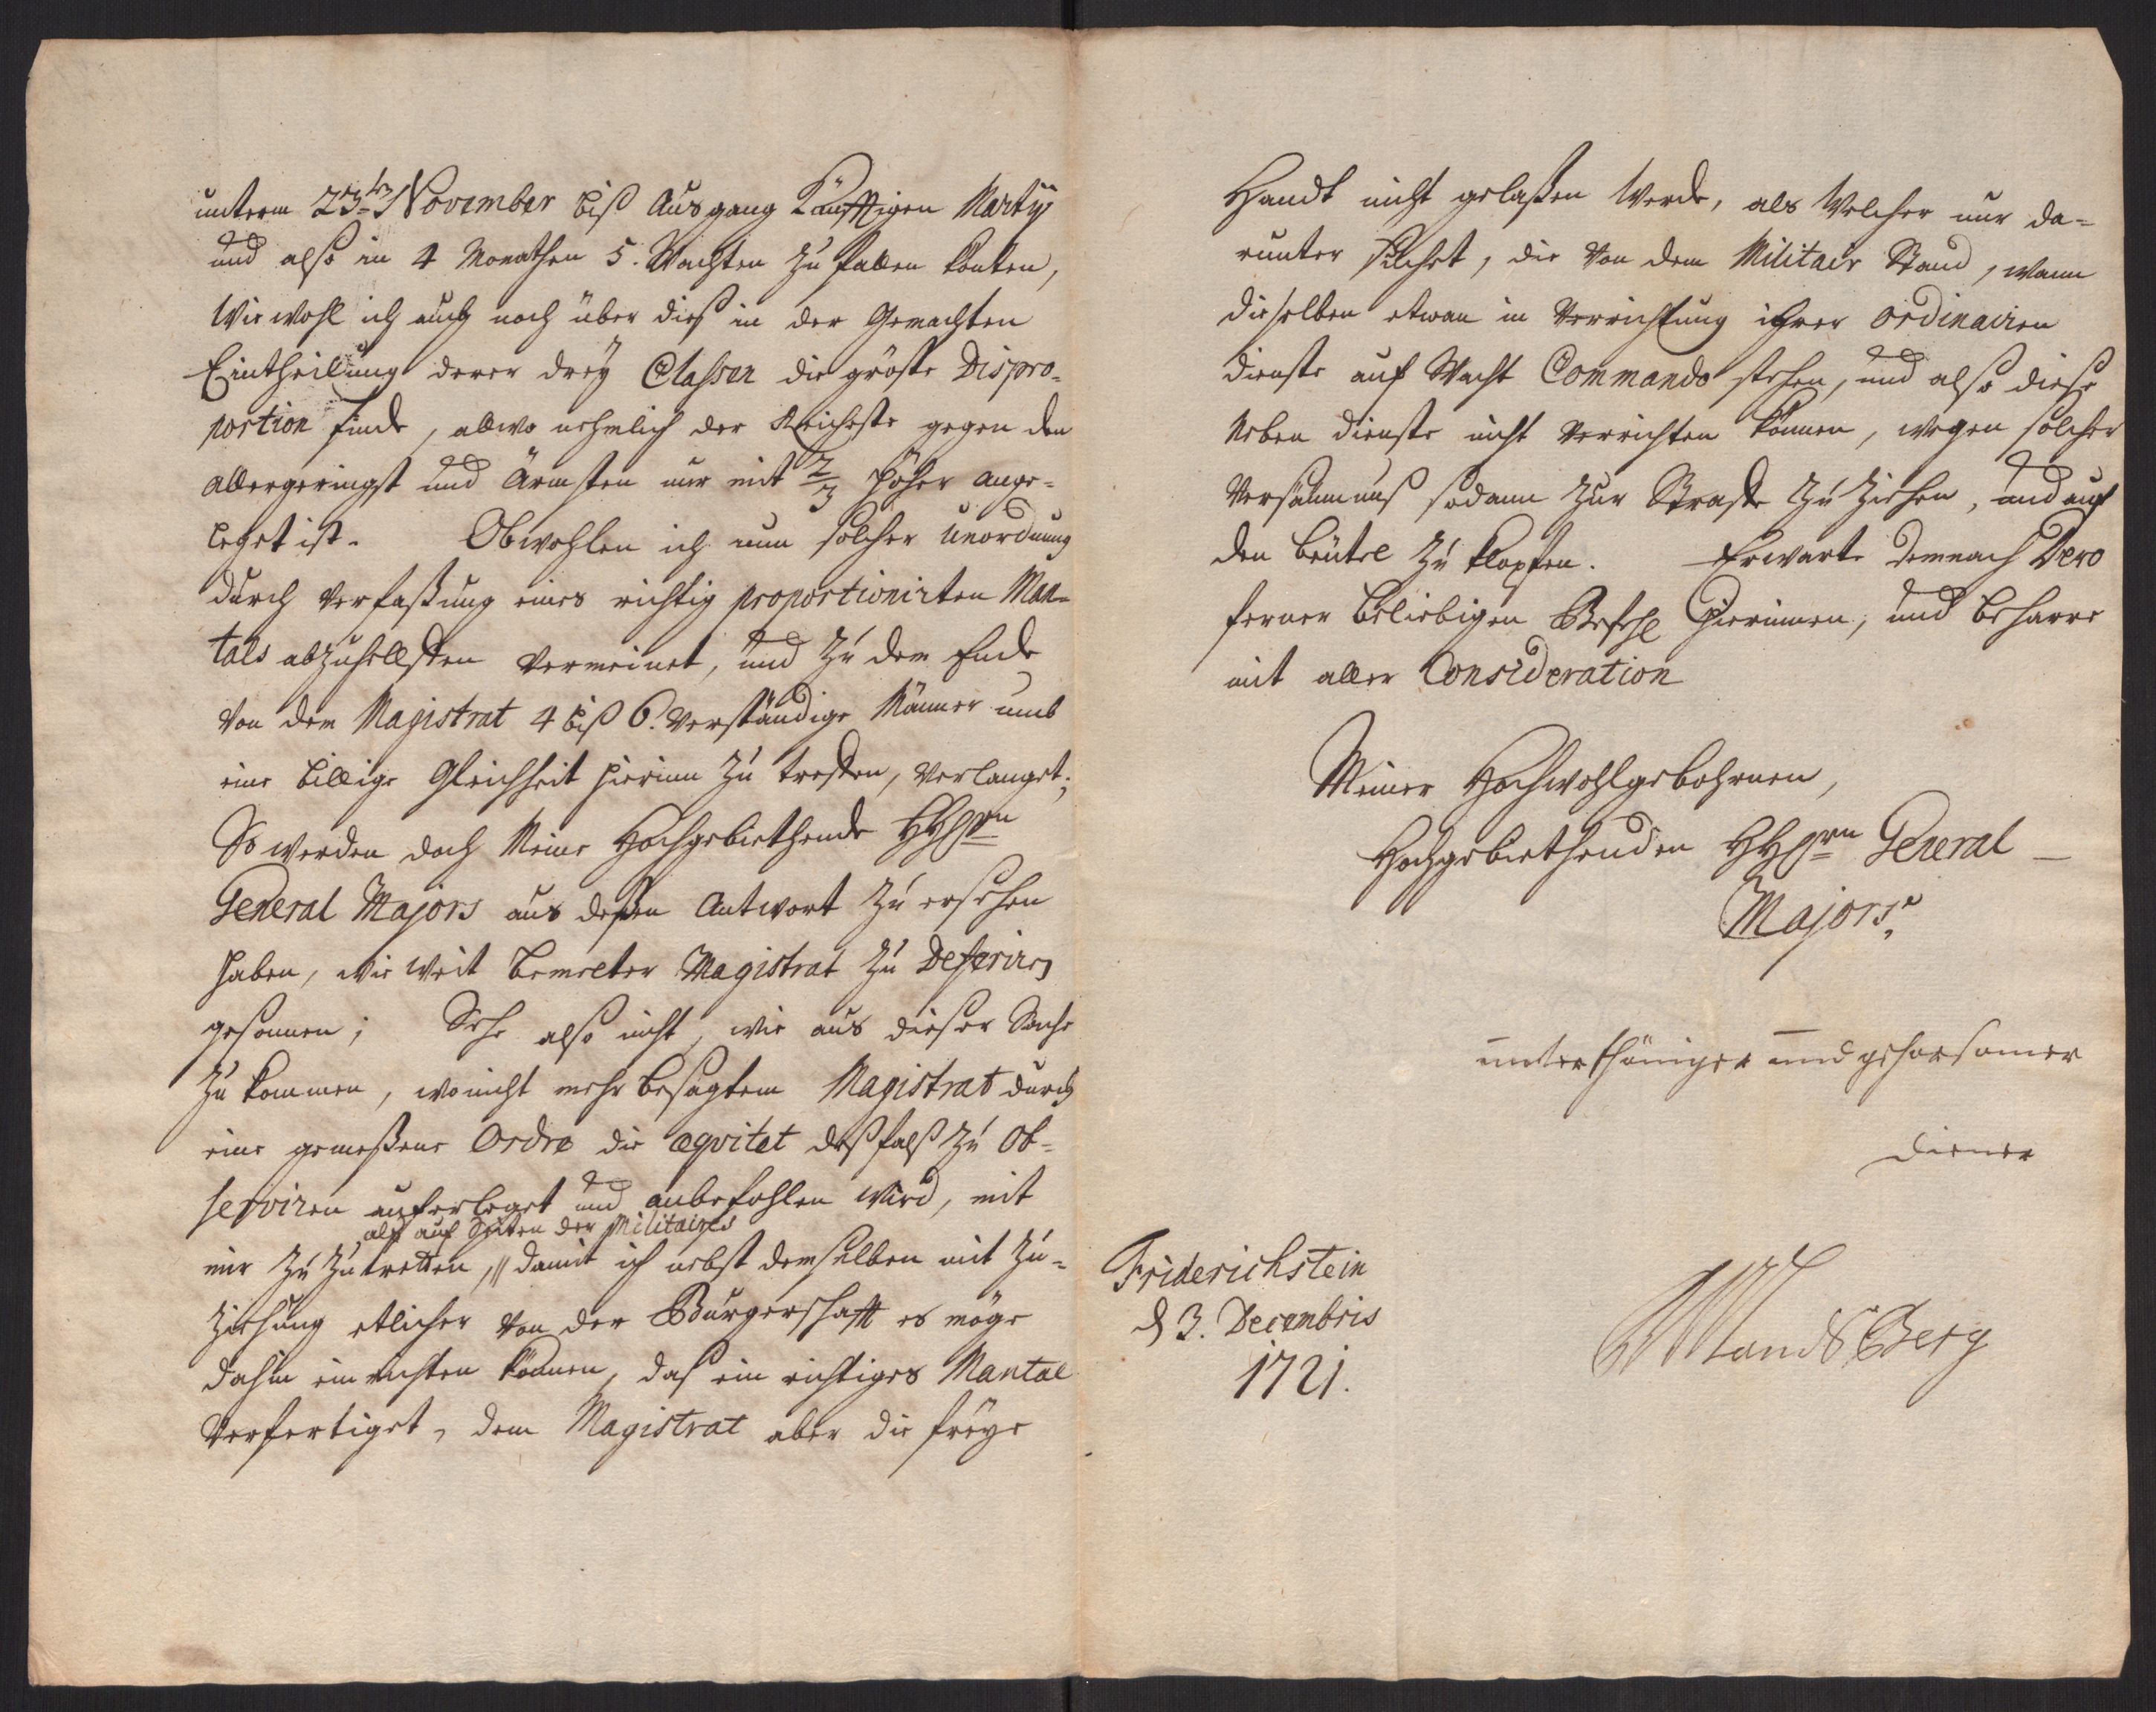 unterm 23ten November biß Ausgang Künfftigen Martÿ
und also in 4 Monathen 5. Wachten zu fallen könten,
Wiewohl ich auch noch über dieß in der Gemachten
Eintheilung derer dreÿ Classen die gröste Dispro-
portion finde, allwo nehmlich der Reicheste gegen den
allergeringst und Ärmsten nur mit 2/3 höher ange-
leget ist. Obwohlen ich nun solcher unordnung
durch Verfaßung eines richtig proportionirten Man-
tals abzuhelffen vermeinet, und zu dem Ende
von dem Magistrat 4 biß 6. verständige Männer umb
eine billige Gleichheit hierinn zu treffen, verlanget;
So werden doch Meine Hochgebiethende HHHrn
General Majors aus deßen Antwort zu ersehen
haben, wie weit bemelter Magistrat zu Deferiren
gesonnen; Sehe also nicht, wie aus dieser Sache
zu kommen, wo nicht mehr besagtem Magistrat durch
eine gemeßene Ordre die æqvitet deßfalß zu Ob-
serviren aufferleget und anbefohlen wird, mit
alß auf Seiten der Militaires
mir zu zutretten, // damit ich nebst demselben mit Zu-
ziehung etlicher von der Bürgerschafft es möge
dahin einrichten können, daß ein richtiges Mantal
verfertiget, dem Magistrat aber die freÿe
Handt nicht gelaßen werde, als Welcher nur da-
runter suchet, die von dem Militair Stand, wann
dieselben etwan in Verrichtung ihrer ordinairen
dienste auf Wacht Commando stehen, und also diese
Neben dienste nicht verrichten können, wegen solcher
Versäumnuß sodann zur Straffe zu ziehen, und auf
den beutel zu klopfen. Erwarte demnach Dero
ferner beliebigen Befehl hierinnen, und beharre
mit aller Consideration
Meiner Hochwohlgebohrnen,
Hochgebiethenden HHHrn General
Majors,
unterthäniger und gehorsamer
diener
Friderichstein
d 3. Decembris
1721.
LandsBerg